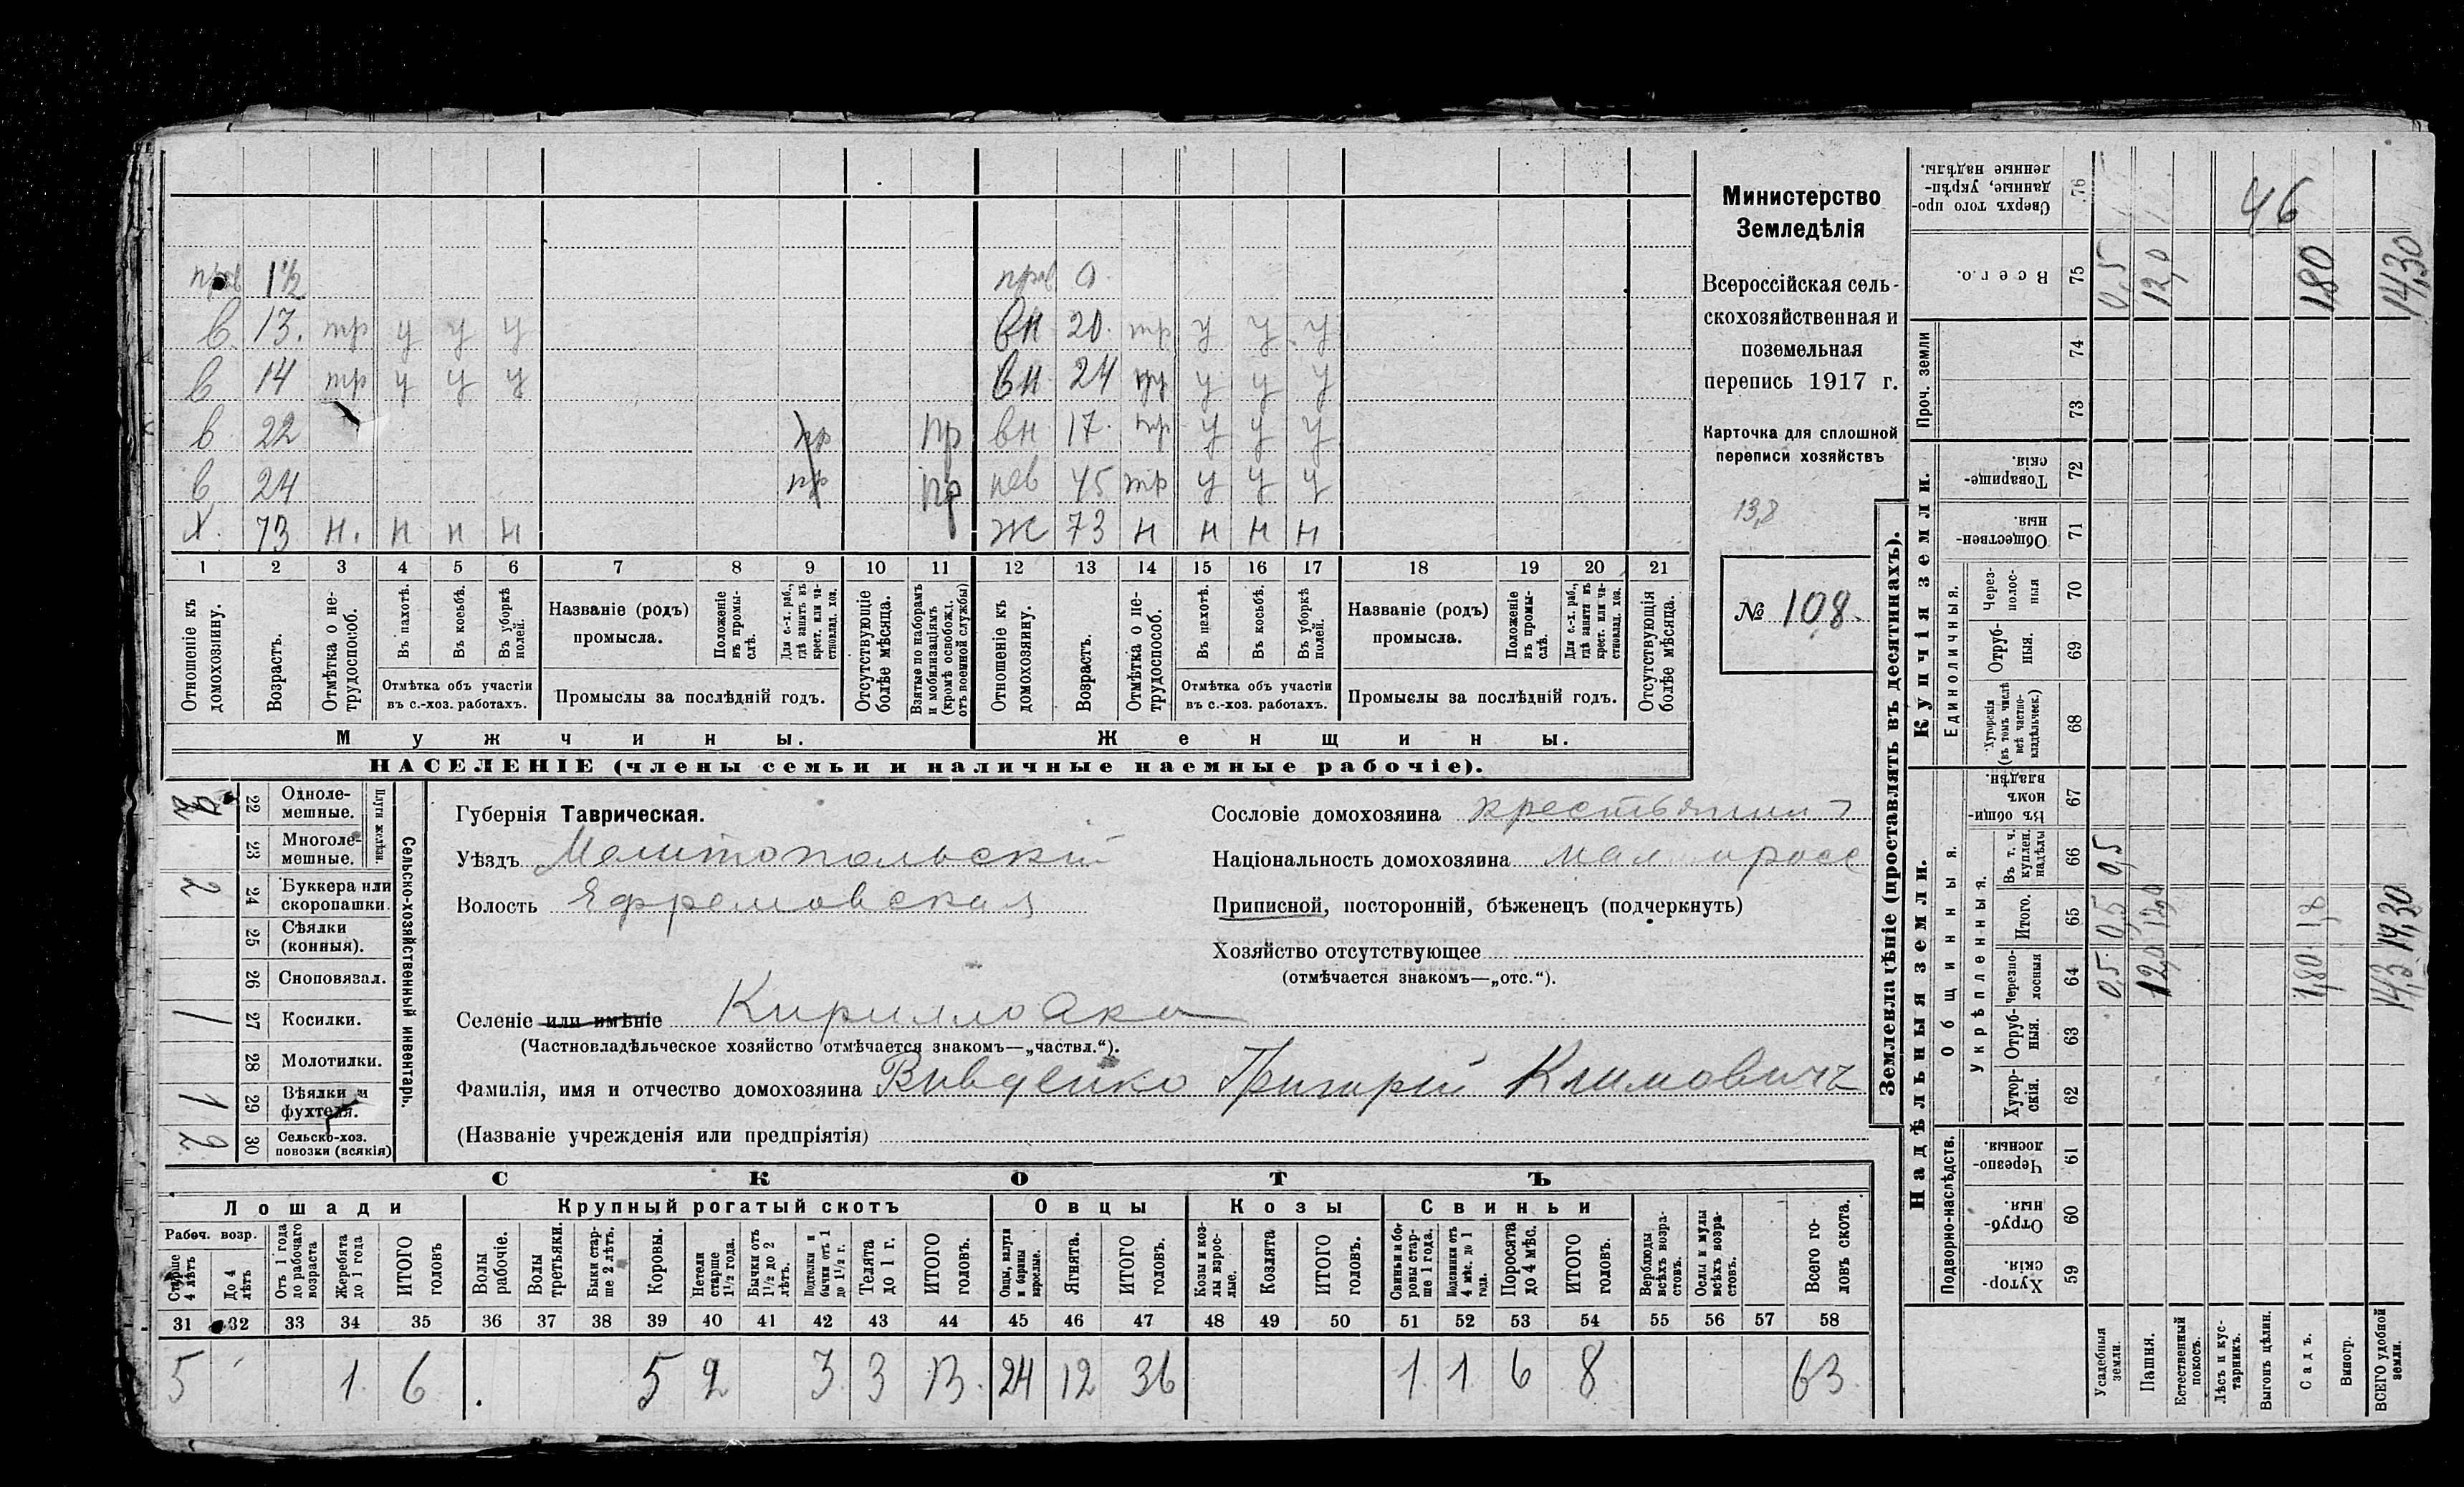 Министерство
Земледѣлія
Всероссійская сель-
скохозяйственная и
поземельная
перепись 1917 г.
Карточка для сплошной
переписи хозяйствъ
13,8
№ 108.
прав 1½ прав 0.
в 13. тр у у у вн 20. тр у у у
в 14 тр у у у вн 24 тр у у у
в 22 пр пр вн 17. тр у у у
в 24 пр пр нев 45 тр у у у
Х. 73 н. н н н Ж 73 н н н н
1 2 3 4 5 6 7 8 9 10 11 12 13 14 15 16 17 18 19 20 21
Отношеніе къ домохозяину.
Возрастъ.
Отмѣтка о не-трудоспособ.
Въ пахотѣ.
Въ косьбѣ.
Въ уборкѣ полей.
Отмѣтка объ участіи
въ с.-хоз. работахъ.
Названіе (родъ)
промысла.
Положеніе въ промы-слѣ.
Для с.-х. раб., гдѣ занятъ въ крест. или ча-стновлад. хоз.
Промыслы за послѣдній годъ.
Отсутствующіе болѣе мѣсяца.
Взятые по наборамъ и мобилизаціямъ (кромѣ освобожд. отъ военной службы)
Отношеніе къ домохозяину.
Возрастъ.
Отмѣтка о не-трудоспособ.
Въ пахотѣ.
Въ косьбѣ.
Въ уборкѣ полей.
Отмѣтка объ участіи
въ с.-хоз. работахъ.
Названіе (родъ)
промысла.
Положеніе въ промы-слѣ.
Для с.-х. раб., гдѣ занята въ крест. или ча-стновлад. хоз.
Промыслы за послѣдній годъ.
Отсутствующія болѣе мѣсяца.
Мужчины. Женщины.
НАСЕЛЕНІЕ (члены семьи и наличные наемные рабочіе).
Сельско-хозяйственный инвентарь.
Плуги желѣзн.
22 Одноле-мешные.
23 Многоле-мешные.
2 24 Буккера или скоропашки.
25 Сѣялки (конныя).
26 Сноповязал.
1 27 Косилки.
28 Молотилки.
1 29 Вѣялки и фухтеля.
2 30 Сельско-хоз. повозки (всякія)
Губернія Таврическая.
Уѣздъ Мелитопольскій
Волость Ефремовская
Селеніе или имѣніе Кирилловка
(Частновладѣльческое хозяйство отмѣчается знакомъ—„частвл.“).
Фамилія, имя и отчество домохозяина Вивденко Григорій Климовичъ
(Названіе учрежденія или предпріятія)
Сословіе домохозяина крестьянин
Національность домохозяина малоросс
Приписной, посторонній, бѣженецъ (подчеркнуть)
Хозяйство отсутствующее
(отмѣчается знакомъ—„отс.“).
СКОТЪ
Лошади Крупный рогатый скотъ Овцы Козы Свиньи
Рабоч. возр.
Старше 4 лѣтъ
До 4 лѣтъ
Отъ 1 года до рабочаго возраста
Жеребята до 1 года
ИТОГО головъ
Волы рабочіе.
Волы третьяки.
Быки стар-ше 2 лѣтъ.
Коровы.
Нетели старше 1½ года.
Бычки отъ 1½ до 2 лѣтъ.
Подтелки и бычки отъ 1 до 1½ г.
Телята до 1 г.
ИТОГО головъ.
Овцы, валухи и бараны взрослые.
Ягнята.
ИТОГО головъ.
Козы и коз-лы взрос-лые.
Козлята
ИТОГО головъ.
Свиньи и бо-ровы стар-ше 1 года.
Подсвинки отъ 4 мѣс. до 1 года.
Поросята до 4 мѣс.
ИТОГО головъ.
Верблюды всѣхъ возра-стовъ.
Ослы и мулы всѣхъ возра-стовъ.
Всего го-ловъ скота.
31 32 33 34 35 36 37 38 39 40 41 42 43 44 45 46 47 48 49 50 51 52 53 54 55 56 57 58
5 1 6 5 2 3 3 13. 24 12 36 1 1 6 8 63
Землевладѣніе (проставлять въ десятинахъ).
Надѣльныя земли. Купчія земли. Проч. земли
Подворно-наслѣдств. Общинныя. Единоличныя.
Укрѣпленныя.
Хутор-скія. 59
Отруб-ныя 60
Черезпо-лосныя. 61
Хутор-скія. 62
Отруб-ныя. 63
Черезпо-лосныя 64
Итого. 65
Въ т. ч. куплен. надѣлы 66
Въ общин-номъ владѣн. 67
Хуторскія (въ томъ числѣ всѣ частно-владѣльческ.) 68
Отруб-ныя. 69
Через-полос-ныя 70
Обществен-ныя. 71
Товарище-скія. 72
73
74
Всего. 75
Сверхъ того про-данные, укрѣп-ленные надѣлы. 76
Усадебныя земли. 0,5 0,5 0,5 0,5
Пашня. 12,0 12,0 12,0
Естественный покосъ.
Лѣсъ и кус-тарникъ.
Выгонъ цѣлин.
Садъ. 1,80 1,8 1,80
Виногр.
ВСЕГО удобной земли. 14,3 14,30 14,30
46